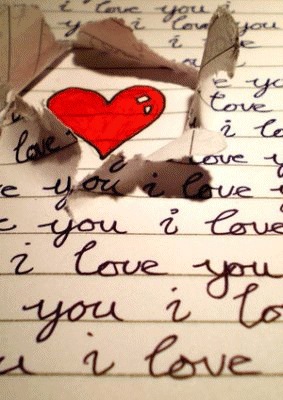 i love you i
i love you
i
e yo
love
love i lo
love y
e you i love y
e you i love
i love you
you i lo
u i love